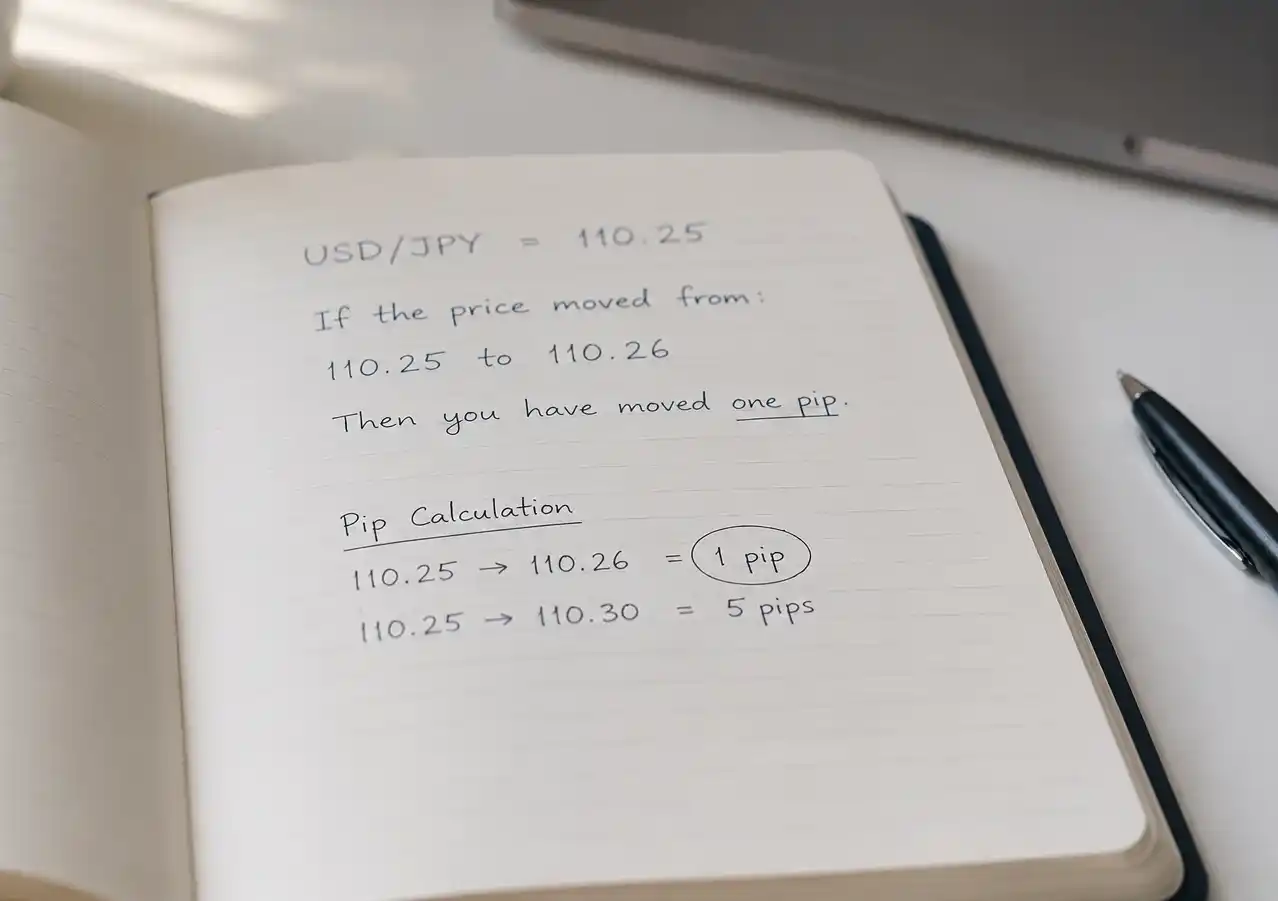 USD/JPY = 110.25
If the price moved from:
110.25 to 110.26
Then you have moved one pip.
Pip Calculation
110.25 → 110.26 = 1 pip
110.25 → 110.30 = 5 pips